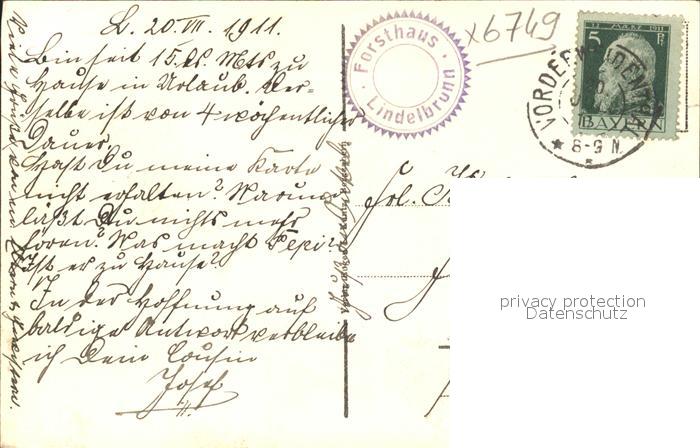 L. 20. VII. 1911.
Bin seit 15. ds. Mts zu
Hause in Urlaub. Der-
selbe ist von 4 wöchentlicher
Dauer.
Hast Du meine Karte
nicht erhalten? Warum
läßt Du nichts mehr
hören? Was macht Pepi?
Ist er zu Hause?
In der Hoffnung auf
baldige Antwort verbleibe
ich Dein Cousin
Josef
Viele Grüße von m. Eltern & Geschwistern.
Forsthaus
Lindelbrunn
x6749
12. MÄRZ 1911
5 Pf
BAYERN
8-9 N.
Frl.
privacy protection
Datenschutz